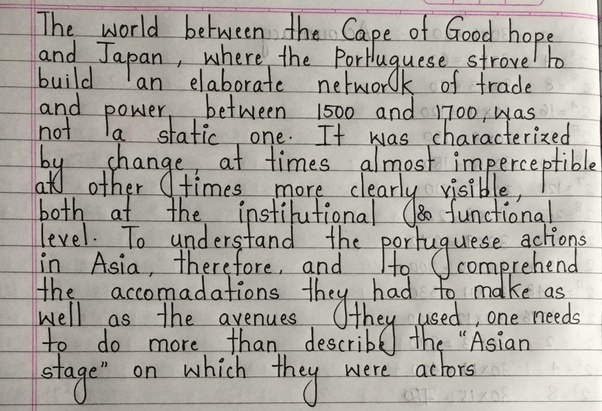 The world between the Cape of Good hope
and Japan, where the Portuguese strove to
build an elaborate network of trade
and power, between 1500 and 1700, was
not a static one. It was characterized
by change, at times almost imperceptible
at other times more clearly visible,
both at the institutional & functional
level. To understand the portuguese actions
in Asia, therefore, and to comprehend
the accomadations they had to make as
well as the avenues they used, one needs
to do more than describe the "Asian
stage" on which they were actors